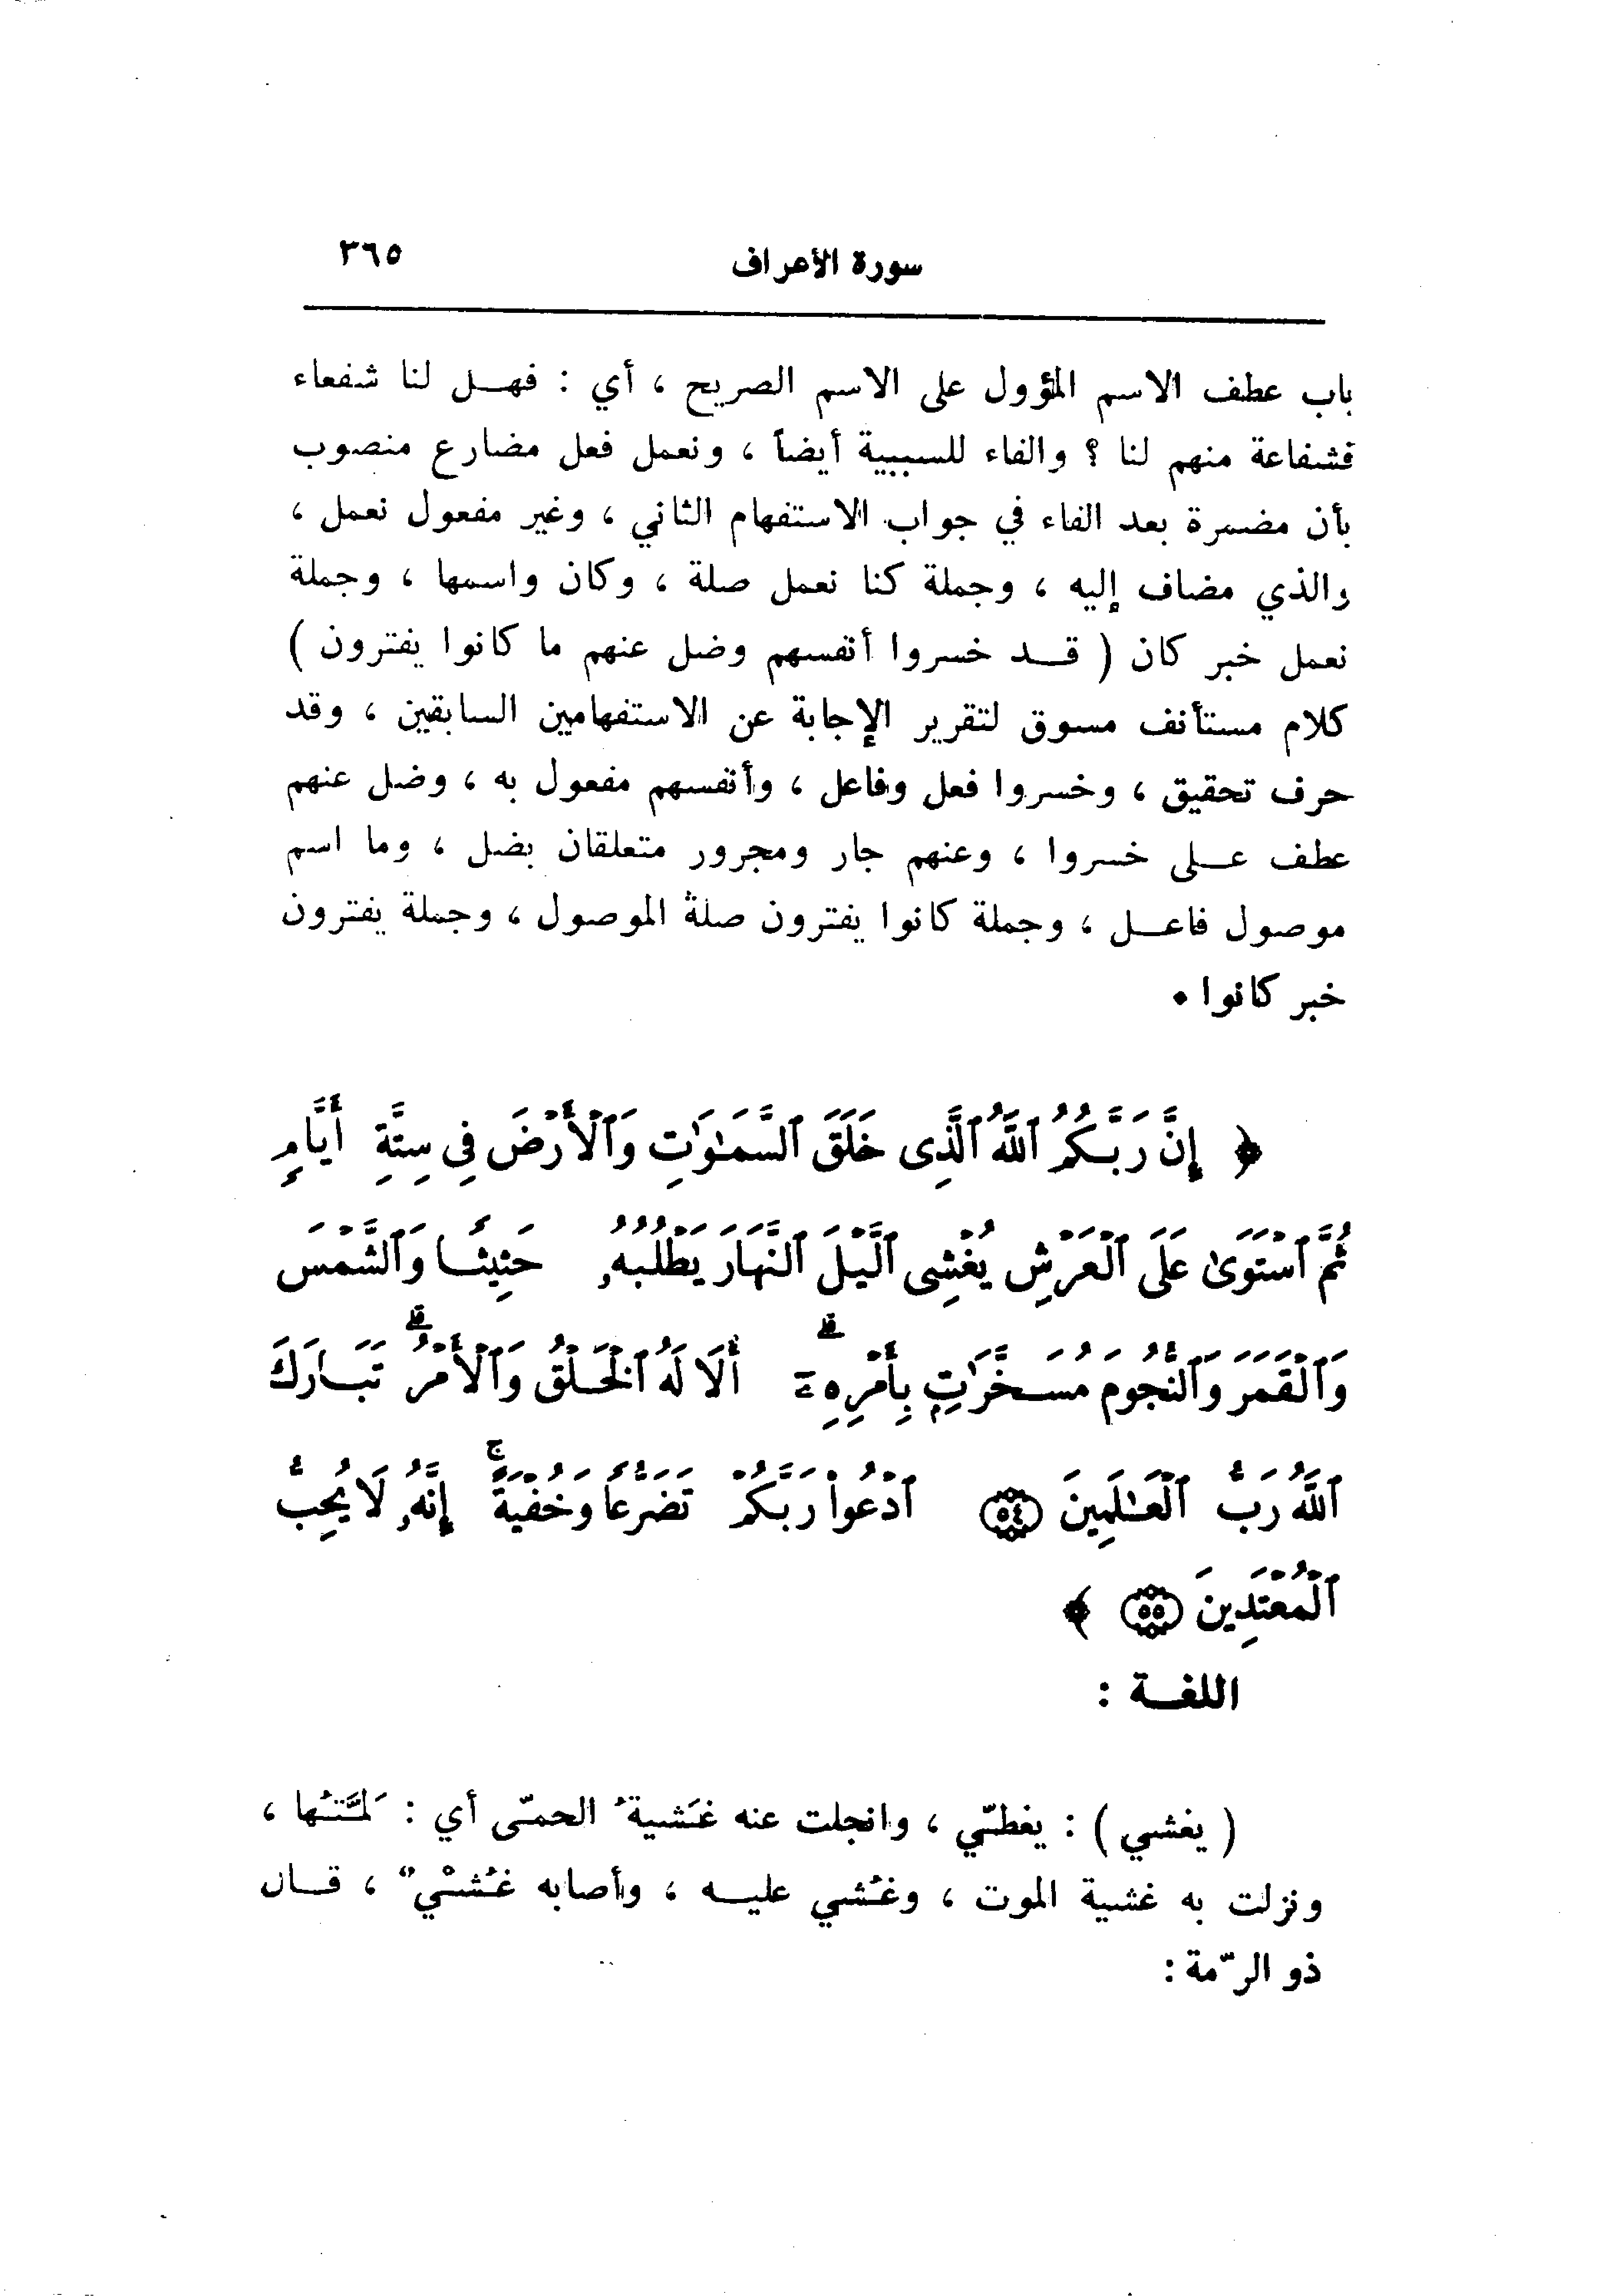 سورة الأعراف ٣٦٥
باب عطف الاسم المؤول على الاسم الصريح ، أي : فهل لنا شفعاء
فشفاعة منهم لنا ؟ والفاء للسببية أيضاً ، ونعمل فعل مضارع منصوب
بأن مضمرة بعد الفاء في جواب الاستفهام الثاني ، وغير مفعول نعمل ،
والذي مضاف إليه ، وجملة كنا نعمل صلة ، وكان واسمها ، وجملة
نعمل خبر كان ( قد خسروا أنفسهم وضل عنهم ما كانوا يفترون )
كلام مستأنف مسوق لتقرير الإجابة عن الاستفهامين السابقين ، وقد
حرف تحقيق ، وخسروا فعل وفاعل ، وأنفسهم مفعول به ، وضل عنهم
عطف على خسروا ، وعنهم جار ومجرور متعلقان بضل ، وما اسم
موصول فاعل ، وجملة كانوا يفترون صلة الموصول ، وجملة يفترون
خبر كانوا .
﴿ إِنَّ رَبَّكُمُ ٱللَّهُ ٱلَّذِى خَلَقَ ٱلسَّمَٰوَٰتِ وَٱلْأَرْضَ فِى سِتَّةِ أَيَّامٍ
ثُمَّ ٱسْتَوَىٰ عَلَى ٱلْعَرْشِ يُغْشِى ٱلَّيْلَ ٱلنَّهَارَ يَطْلُبُهُۥ حَثِيثًا وَٱلشَّمْسَ
وَٱلْقَمَرَ وَٱلنُّجُومَ مُسَخَّرَٰتٍۭ بِأَمْرِهِۦٓ ۗ أَلَا لَهُ ٱلْخَلْقُ وَٱلْأَمْرُ ۗ تَبَارَكَ
ٱللَّهُ رَبُّ ٱلْعَٰلَمِينَ ٥٤ ٱدْعُوا۟ رَبَّكُمْ تَضَرُّعًا وَخُفْيَةً ۚ إِنَّهُۥ لَا يُحِبُّ
ٱلْمُعْتَدِينَ ٥٥ ﴾
اللغة :
( يغشي ) : يغطّي ، وانجلت عنه غَشيةُ الحمّى أي : لمَّتُها ،
ونزلت به غشية الموت ، وغُشي عليه ، وأصابه غُشْيٌ ، قال
ذو الرّمة :